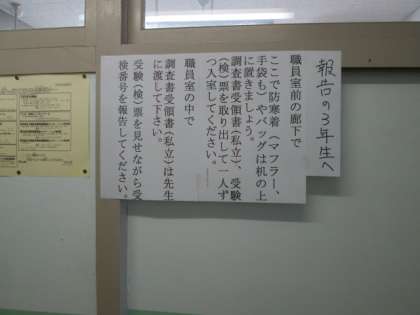 報告の3年生へ
職員室前の廊下で
ここで防寒着（マフラー、
手袋も）やバッグは机の上
に置きましょう。
調査書受領書（私立）、受験
（検）票を取り出して一人ず
つ入室してください。
職員室の中で
調査書受領書（私立）は先生
に渡して下さい。
受験（検）票を見せながら受
検番号を報告してください。